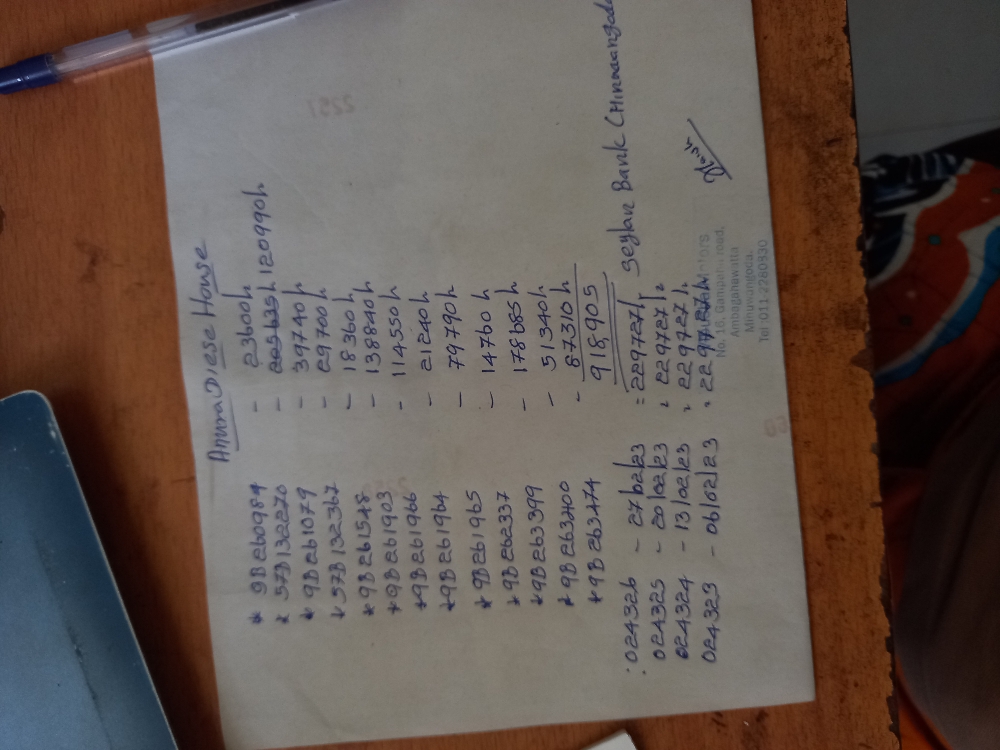 Anura Diesel House
* 9B260984 - 23600/-
* 57B132270 - 225635/- 120990/-
* 9B261079 - 39740/-
* 57B132367 - 29700/-
* 9B261548 - 18360/-
* 9B261903 - 138840/-
* 9B261966 - 114550/-
* 9B261964 - 21240/-
* 9B261965 - 79790/-
* 9B262337 - 14760/-
* 9B263399 - 178685/-
* 9B263400 - 51340/-
* 9B263474 - 67310/-
918,905
024326 - 27/02/23 = 229727/- Seylan Bank (Minuwangoda
024325 - 20/02/23 = 229727/-
024324 - 13/02/23 = 229727/-
024323 - 06/02/23 = 229727/-
Motors
No. 16, Gampaha road,
Ambagahawatta
Minuwangoda.
Tel :011-2280330
2251